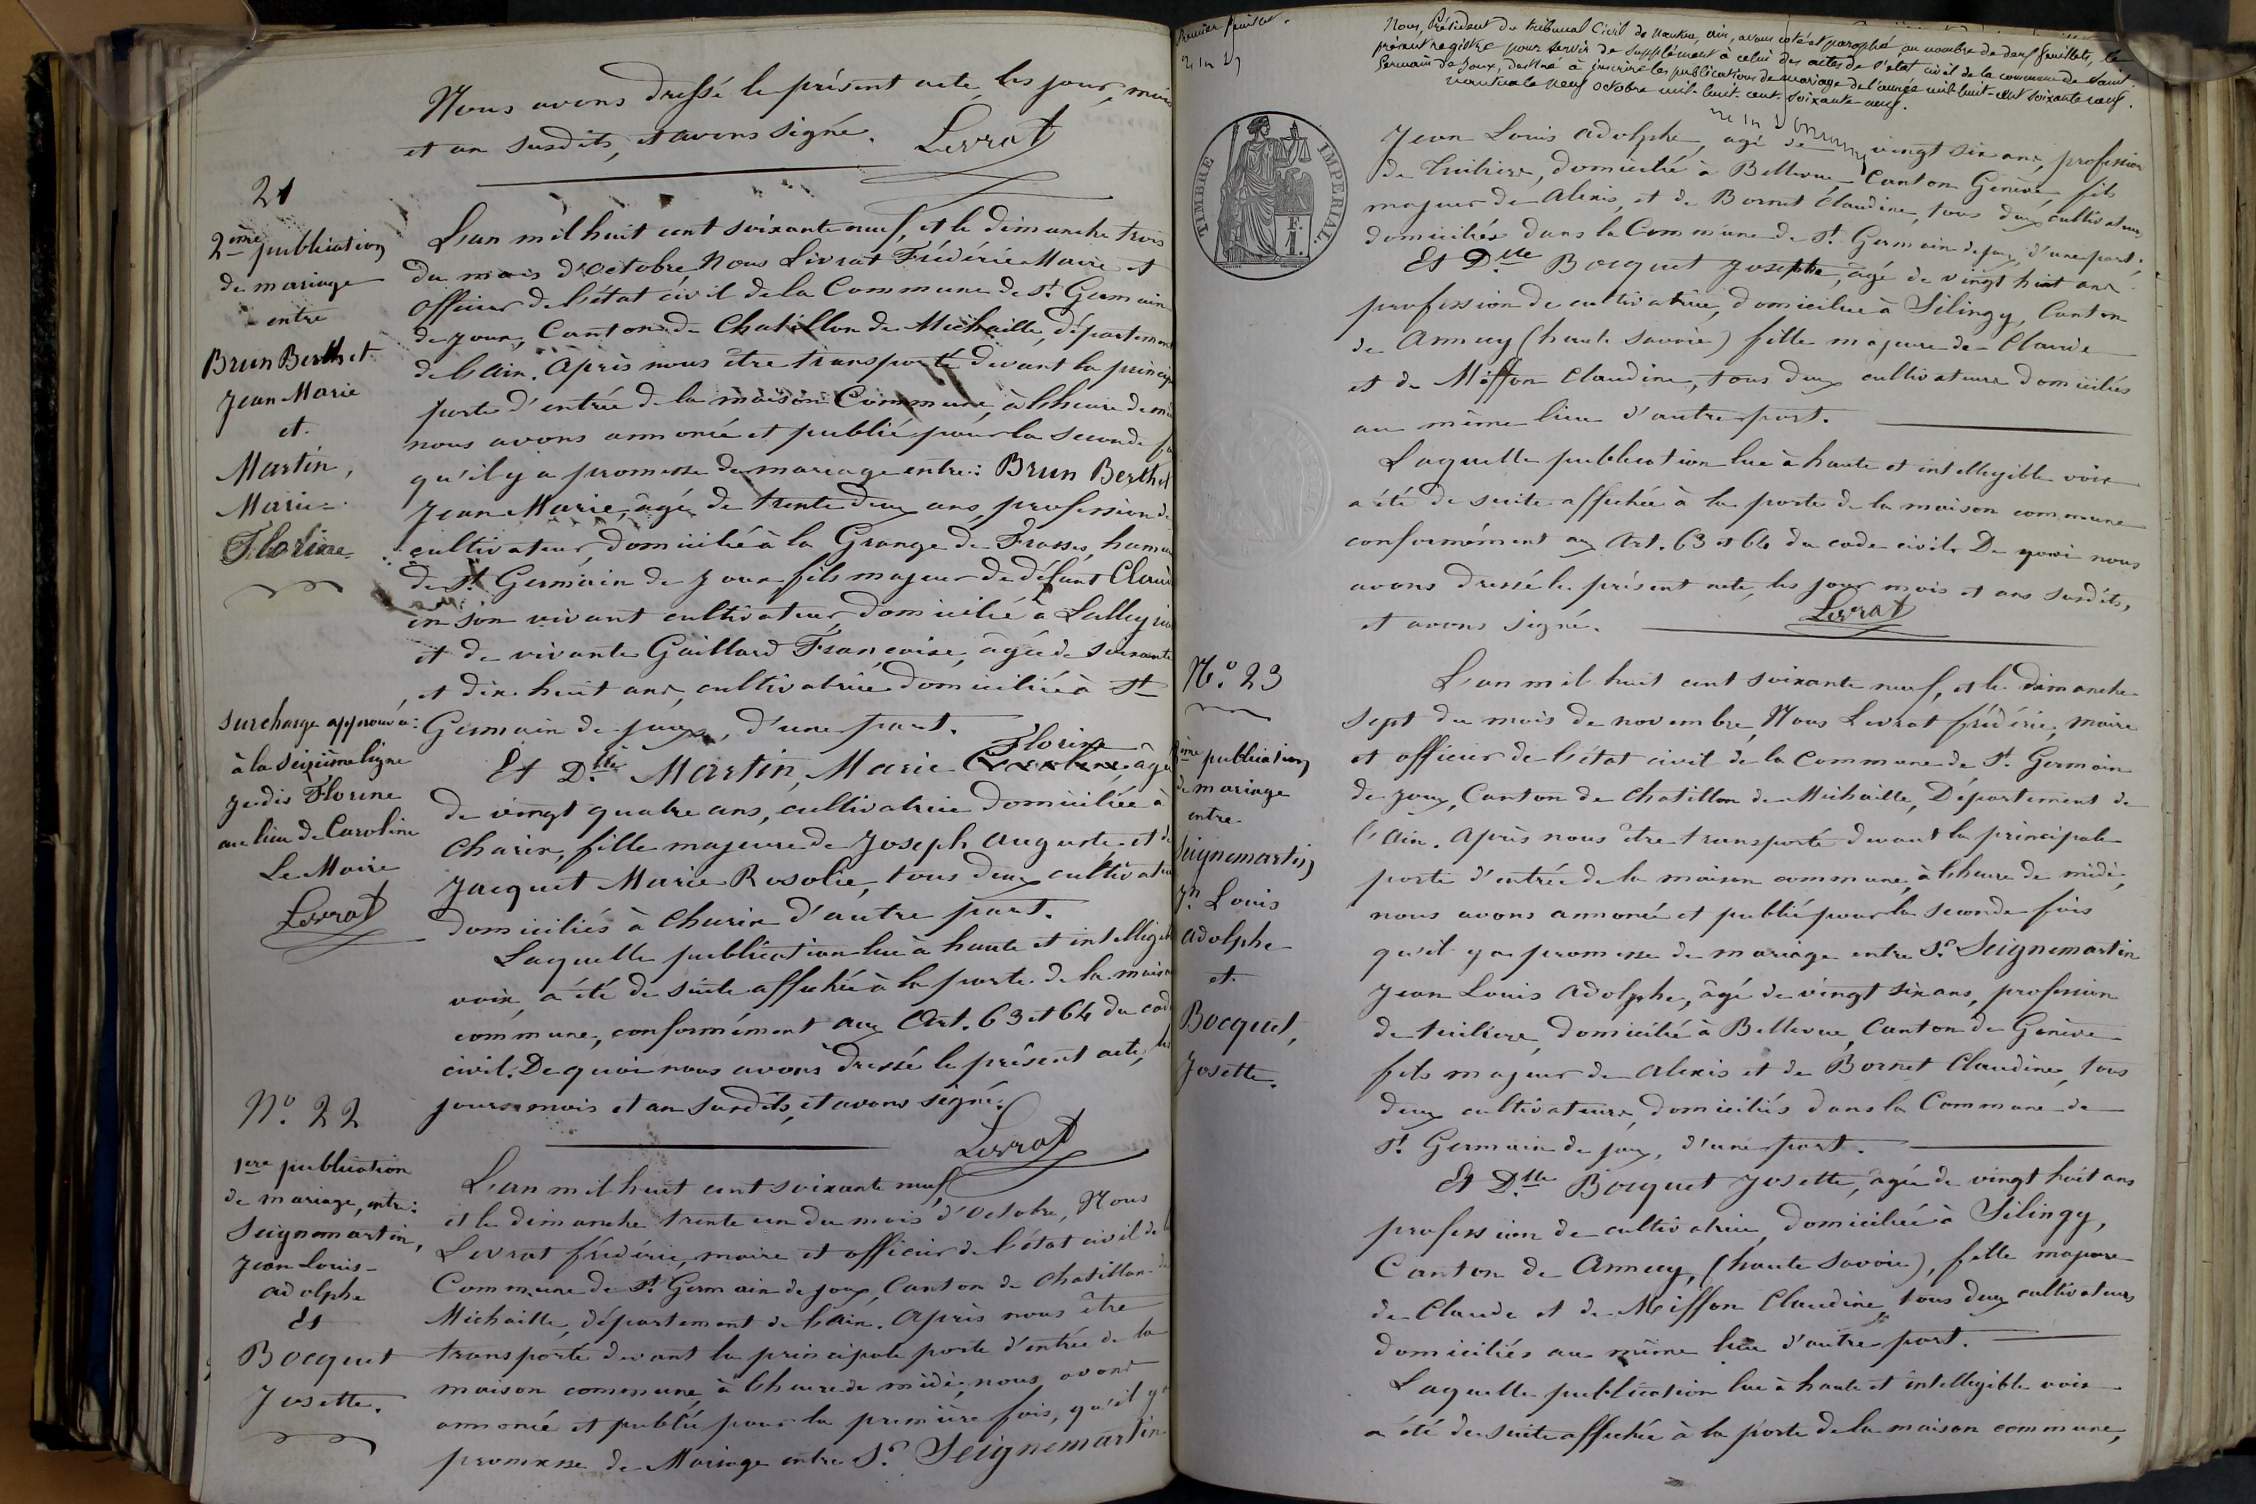 Nous avons dressé le présent acte, les jour, mois
et an susdits, et avons signé. Levrat
21
2ème publication
de mariage
entre
Brun Berthet
Jean Marie
et
Martin,
Marie
Florine
L'an mil huit cent soixante neuf, et le dimanche trois
du mois d'octobre, Nous Levrat Frédéric Maire et
officier de l'état civil de la Commune de St. Germain
de Joux, Canton de Chatillon de Michaille, département
de l'Ain. Après nous être transporté devant la
porte d'entrée de la maison Commune, à l'heure de
nous avons annoncé et publié pour la seconde
qu'il y a promesse de mariage entre : Brun Berthet
Jean Marie, âgé de trente deux ans, profession de
cultivateur, domicilié à la Grange de Frasses,
de St. Germain de Joux fils majeur de défunt
en son vivant cultivateur, domicilié à
et de vivante Gaillard Françoise, âgée de soixante
et dix-huit ans, cultivatrice domiciliée à St
Germain de Joux, d'une part.
surcharge approuvée :
à la seizième ligne
je dis Florine
au lieu de Caroline
Le Maire
Levrat
Florine
Et Dlle Martin, Marie Caroline âgée
de vingt quatre ans, cultivatrice domiciliée à
Charix, fille majeure de Joseph Auguste et de
Jacquet Marie Rosalie, tous deux cultivateurs
domiciliés à Charix d'autre part.
Laquelle publication lue à haute et intelligible
voix, a été de suite affichée à la porte de la maison
commune, conformément aux Art. 63 et 64 du code
civil. De quoi nous avons dressé le présent acte, les
jours mois et an susdits, et avons signé.
Levrat
No. 22
1ère publication
de mariage, entre :
Seignemartin,
Jean Louis
Adolphe
Et
Bocquet
Josette.
L'an mil huit cent soixante neuf
et le dimanche trente un du mois d'Octobre, Nous
Levrat frédéric, maire et officier de l'état civil de la
Commune de St. Germain de Joux, Canton de Chatillon de
Michaille, département de l'Ain. Après nous être
transporté devant la principale porte d'entrée de la
maison commune, à l'heure de midi, nous avons
annoncé et publié pour la première fois, qu'il y a
promesse de Mariage entre Sr. Seignemartin
Premier feuillet.
Nous, Président du tribunal Civil de Nantua, Ain, avons coté et paraphé au nombre de deux feuillets, le
présent registre pour servir de supplément à celui des actes de l'état civil de la commune de Saint
Germain de Joux, destiné à inscrire les publications de mariage de l'année mil huit cent soixante neuf.
Nantua le neuf octobre mil huit cent soixante neuf.
TIMBRE IMPERIAL.
1 F.
Jean Louis Adolphe, agé de vingt six ans, profession
de tuilier, domicilié à Bellevue Canton Genève, fils
majeur de Alexis, et de Bornet Claudine, tous deux cultivateurs
domiciliés dans la Commune de St. Germain de Joux, d'une part ;
Et Dlle Bocquet Josette, âgé de vingt huit ans
profession de cultivatrice, domiciliée à Silingy, Canton
de Annecy (haute savoie) fille majeure de Claude
et de Miffon Claudine, tous deux cultivateurs domiciliés
au même lieu d'autre part.
Laquelle publication lue à haute et intelligible voix
a été de suite affichée à la porte de la maison commune
conformément aux Art. 63 et 64 du code civil. De quoi nous
avons dressé le présent acte, les jour mois et ans susdits,
et avons signé. Levrat
No. 23
2ème publication
de mariage
entre
Seignemartin
Jn Louis
Adolphe
et
Bocquet,
Josette.
L'an mil huit cent soixante neuf, et le dimanche
sept du mois de novembre, Nous Levrat frédéric, maire
et officier de l'état civil de la Commune de St. Germain
de Joux, Canton de Chatillon de Michaille, Département de
l'Ain. Après nous être transporté devant la principale
porte d'entrée de la maison commune, à l'heure de midi,
nous avons annoncé et publié pour la seconde fois
qu'il y a promesse de mariage entre Sr. Seignemartin
Jean Louis Adolphe, âgé de vingt six ans, profession
de tuilier, domicilié à Bellevue, Canton de Genève
fils majeur de Alexis et de Bornet Claudine, tous
deux cultivateurs, domiciliés dans la Commune de
St. Germain de Joux, d'une part.
Et Dlle Bocquet Josette, âgée de vingt huit ans
profession de cultivatrice, domiciliée à Silingy,
Canton de Annecy, (haute Savoie), fille majeure
de Claude et de Miffon Claudine, tous deux cultivateurs
domiciliés au même lieu d'autre part.
Laquelle publication lue à haute et intelligible voix
a été de suite affichée à la porte de la maison commune,